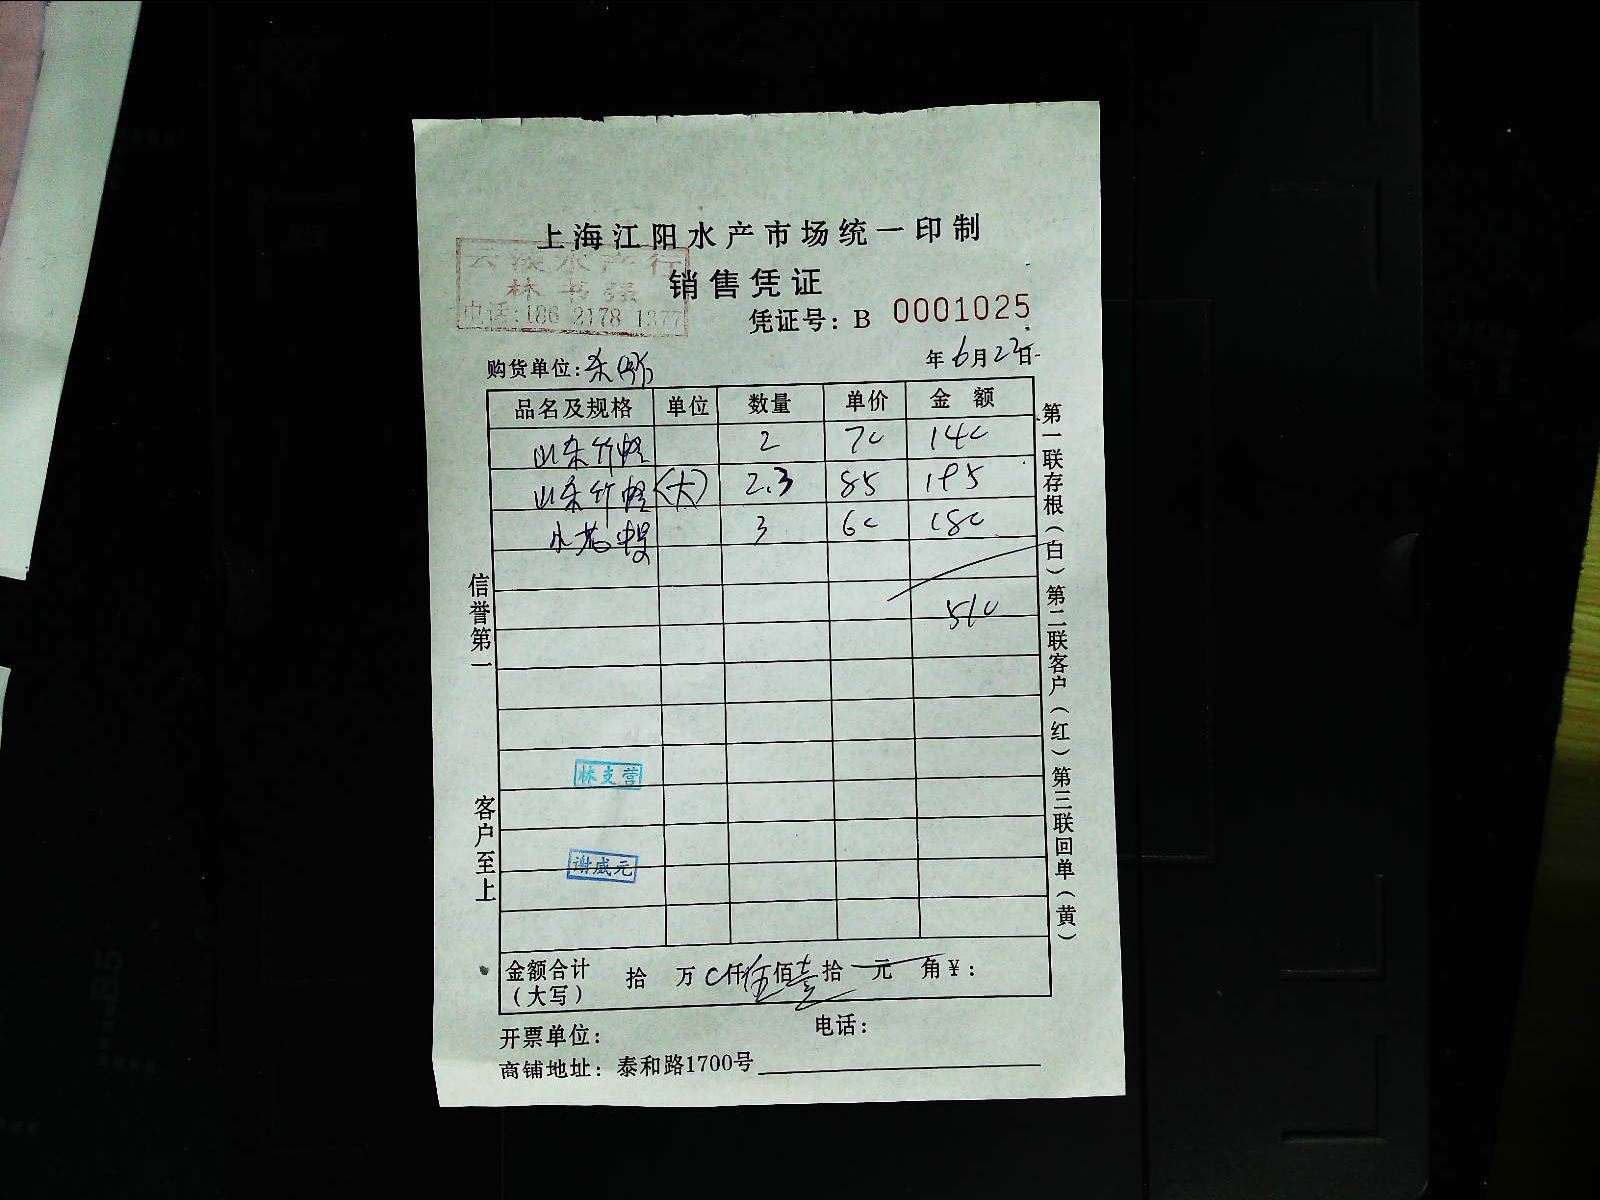 上海江阳水产市场统一印制
销售凭证
水产行
林书强
电话:186 2178 1377
凭证号: B 0001025
购货单位:
年 6月22日
品名及规格 单位 数量 单价 金额
山东竹蛏 2 70 140
山东竹蛏(大) 2.3 85 195
小花螺 3 60 180
510
信誉第一
客户至上
第一联存根(白)第二联客户(红)第三联回单(黄)
林支营
谢威元
金额合计(大写) 拾 万 0仟伍佰壹拾 元 角¥:
开票单位: 电话:
商铺地址: 泰和路1700号